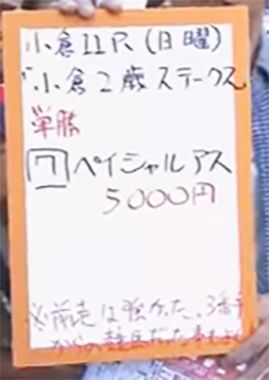 小倉11R(日曜)
"小倉2歳ステークス
単勝
7 ペイシャルアス
5000円
※前走は強かった。3番手
からの競馬だった事も